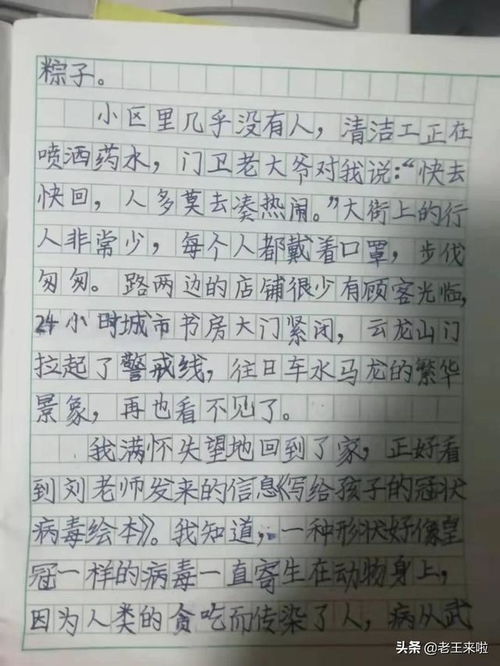 粽子。
小区里几乎没有人，清洁工正在
喷洒药水，门卫老大爷对我说：“快去
快回，人多莫去凑热闹。”大街上的行
人非常少，每个人都戴着口罩，步伐
匆匆。路两边的店铺很少有顾客光临，
24小时城市书房大门紧闭，云龙山门
拉起了警戒线，往日车水马龙的繁华
景象，再也看不见了。
我满怀失望地回到了家，正好看
到刘老师发来的信息《写给孩子的冠状
病毒绘本》。我知道，一种形状好像皇
冠一样的病毒一直寄生在动物身上，
因为人类的贪吃而传染了人，病从武
头条 @老王来啦